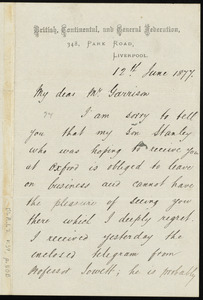 British, Continental, and General Federation,
348, PARK ROAD,
LIVERPOOL.
12th June 1877.
My dear Mr. Garrison
I am sorry to tell
you that my son Stanley
who was hoping to receive you
at Oxford is obliged to leave
on business and cannot have
the pleasure of seeing you
there which I deeply regret.
I received yesterday the
enclosed telegram from
Professor Jowett; he is probably